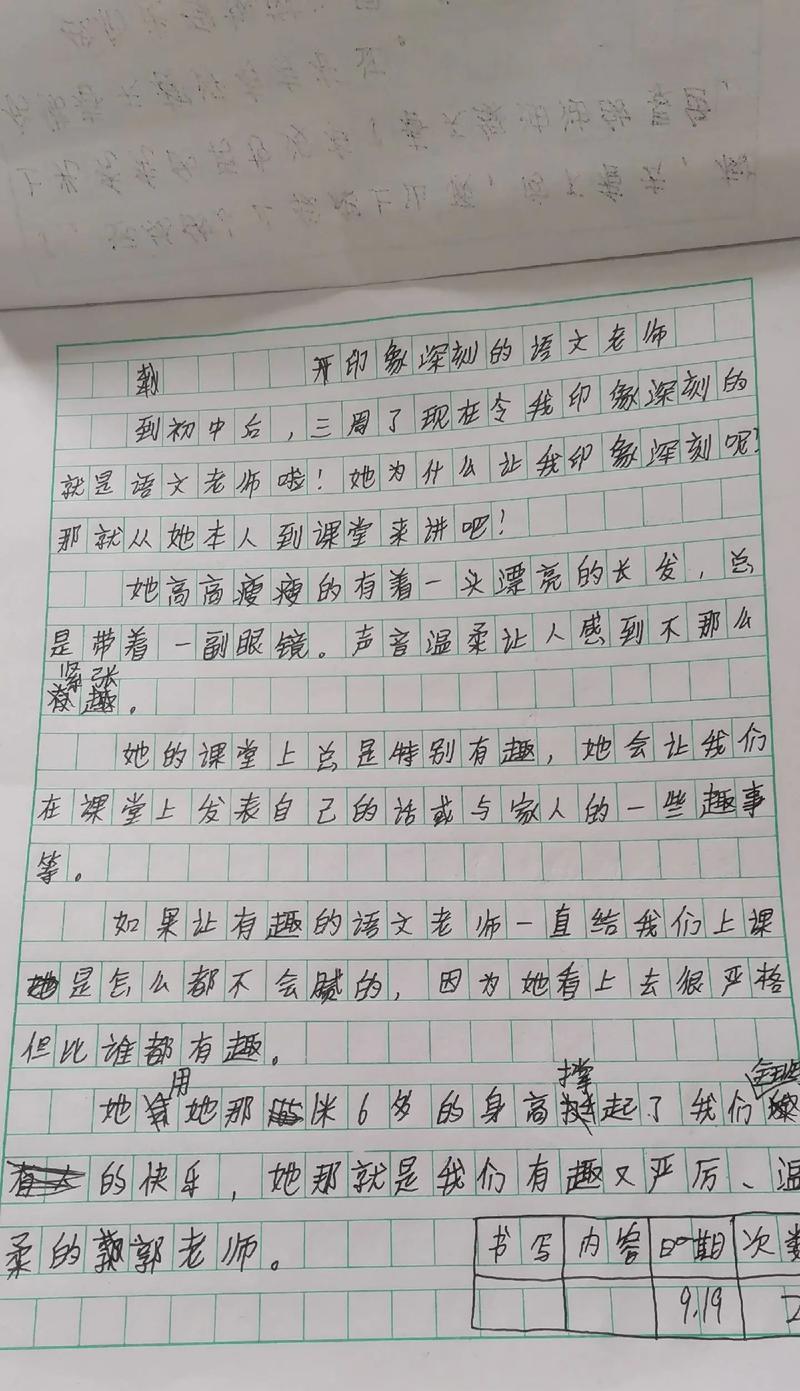 印象深刻的语文老师
到初中后，三周了现在令我印象深刻的
就是语文老师啦！她为什么让我印象深刻呢？
那就从她本人到课堂来讲吧！
她高高瘦瘦的有着一头漂亮的长发，总
是带着一副眼镜。声音温柔让人感到不那么
紧张。
她的课堂上总是特别有趣，她会让我们
在课堂上发表自己的话或与家人的一些趣事
等。
如果让有趣的语文老师一直给我们上课
是怎么都不会腻的，因为她看上去很严格
但比谁都有趣。
她用她那1米6多的身高撑起了我们全班
的快乐，她那就是我们有趣又严厉、温
柔的郭老师。
书写 内容 日期 次数
9.19 2